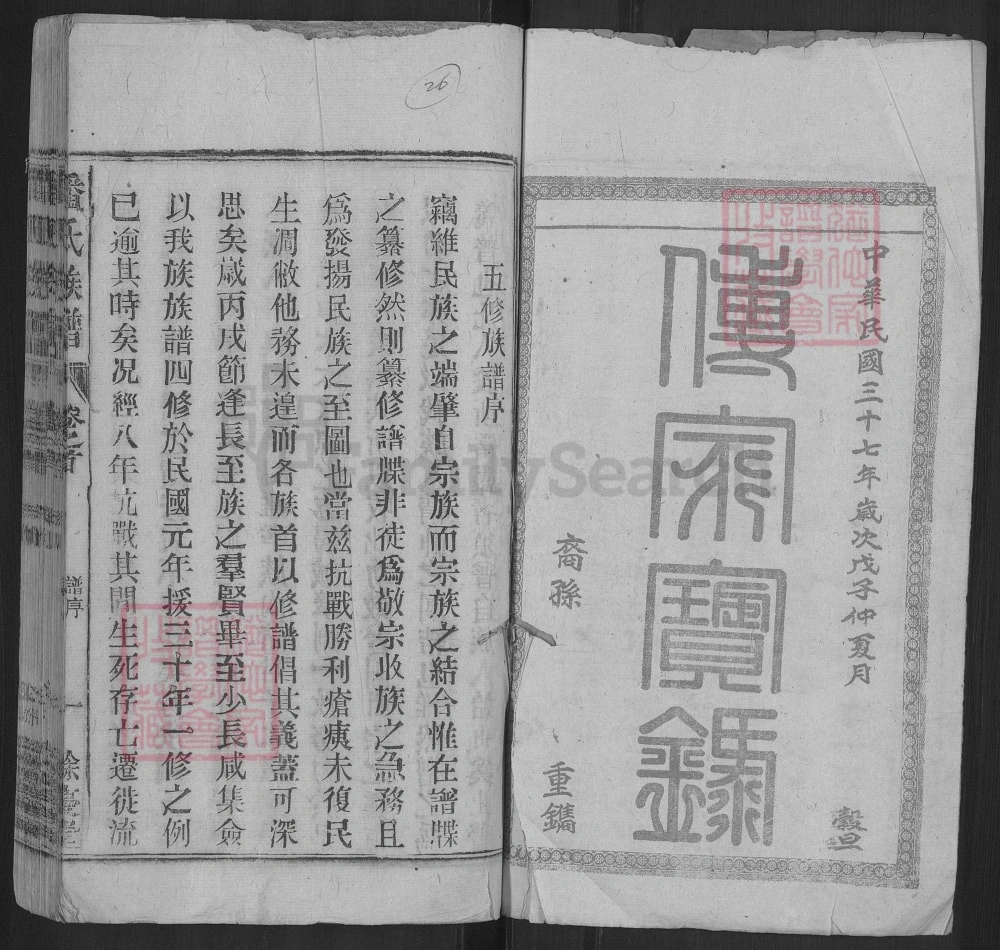 中華民國三十七年歲次戊子仲夏月
穀旦
傳家寶錄
裔孫
重鐫
26
五修族譜序
竊維民族之端肇自宗族而宗族之結合惟在譜牒
之纂修然則纂修譜牒非徒爲敬宗收族之急務且
爲發揚民族之至圖也當兹抗戰勝利瘡痍未復民
生凋敝他務未遑而各族首以修譜倡其義蓋可深
思矣歲丙戌節逢長至族之羣賢畢至少長咸集僉
以我族族譜四修於民國元年援三十年一修之例
已逾其時矣况經八年抗戰其間生死存亡遷徙流
氏族譜
卷之首
譜序
一
FamilySearch